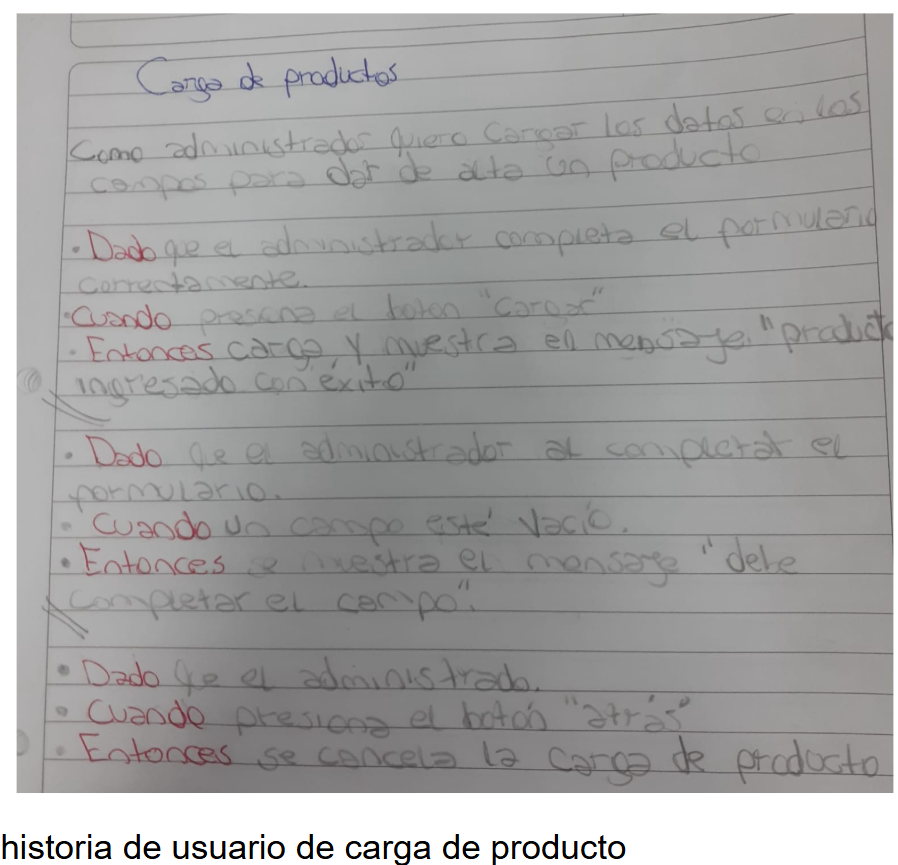 Carga de productos
Como administrador quiero cargar los datos en los
campos para dar de alta un producto
• Dado que el administrador completa el formulario
correctamente.
• Cuando presiona el botón "cargar"
• Entonces carga y muestra el mensaje "producto
ingresado con éxito"
• Dado que el administrador al completar el
formulario.
• Cuando un campo esté vacío.
• Entonces se muestra el mensaje "debe
completar el campo".
• Dado que el administrado.
• Cuando presiona el botón "atrás"
• Entonces se cancela la carga de producto
historia de usuario de carga de producto